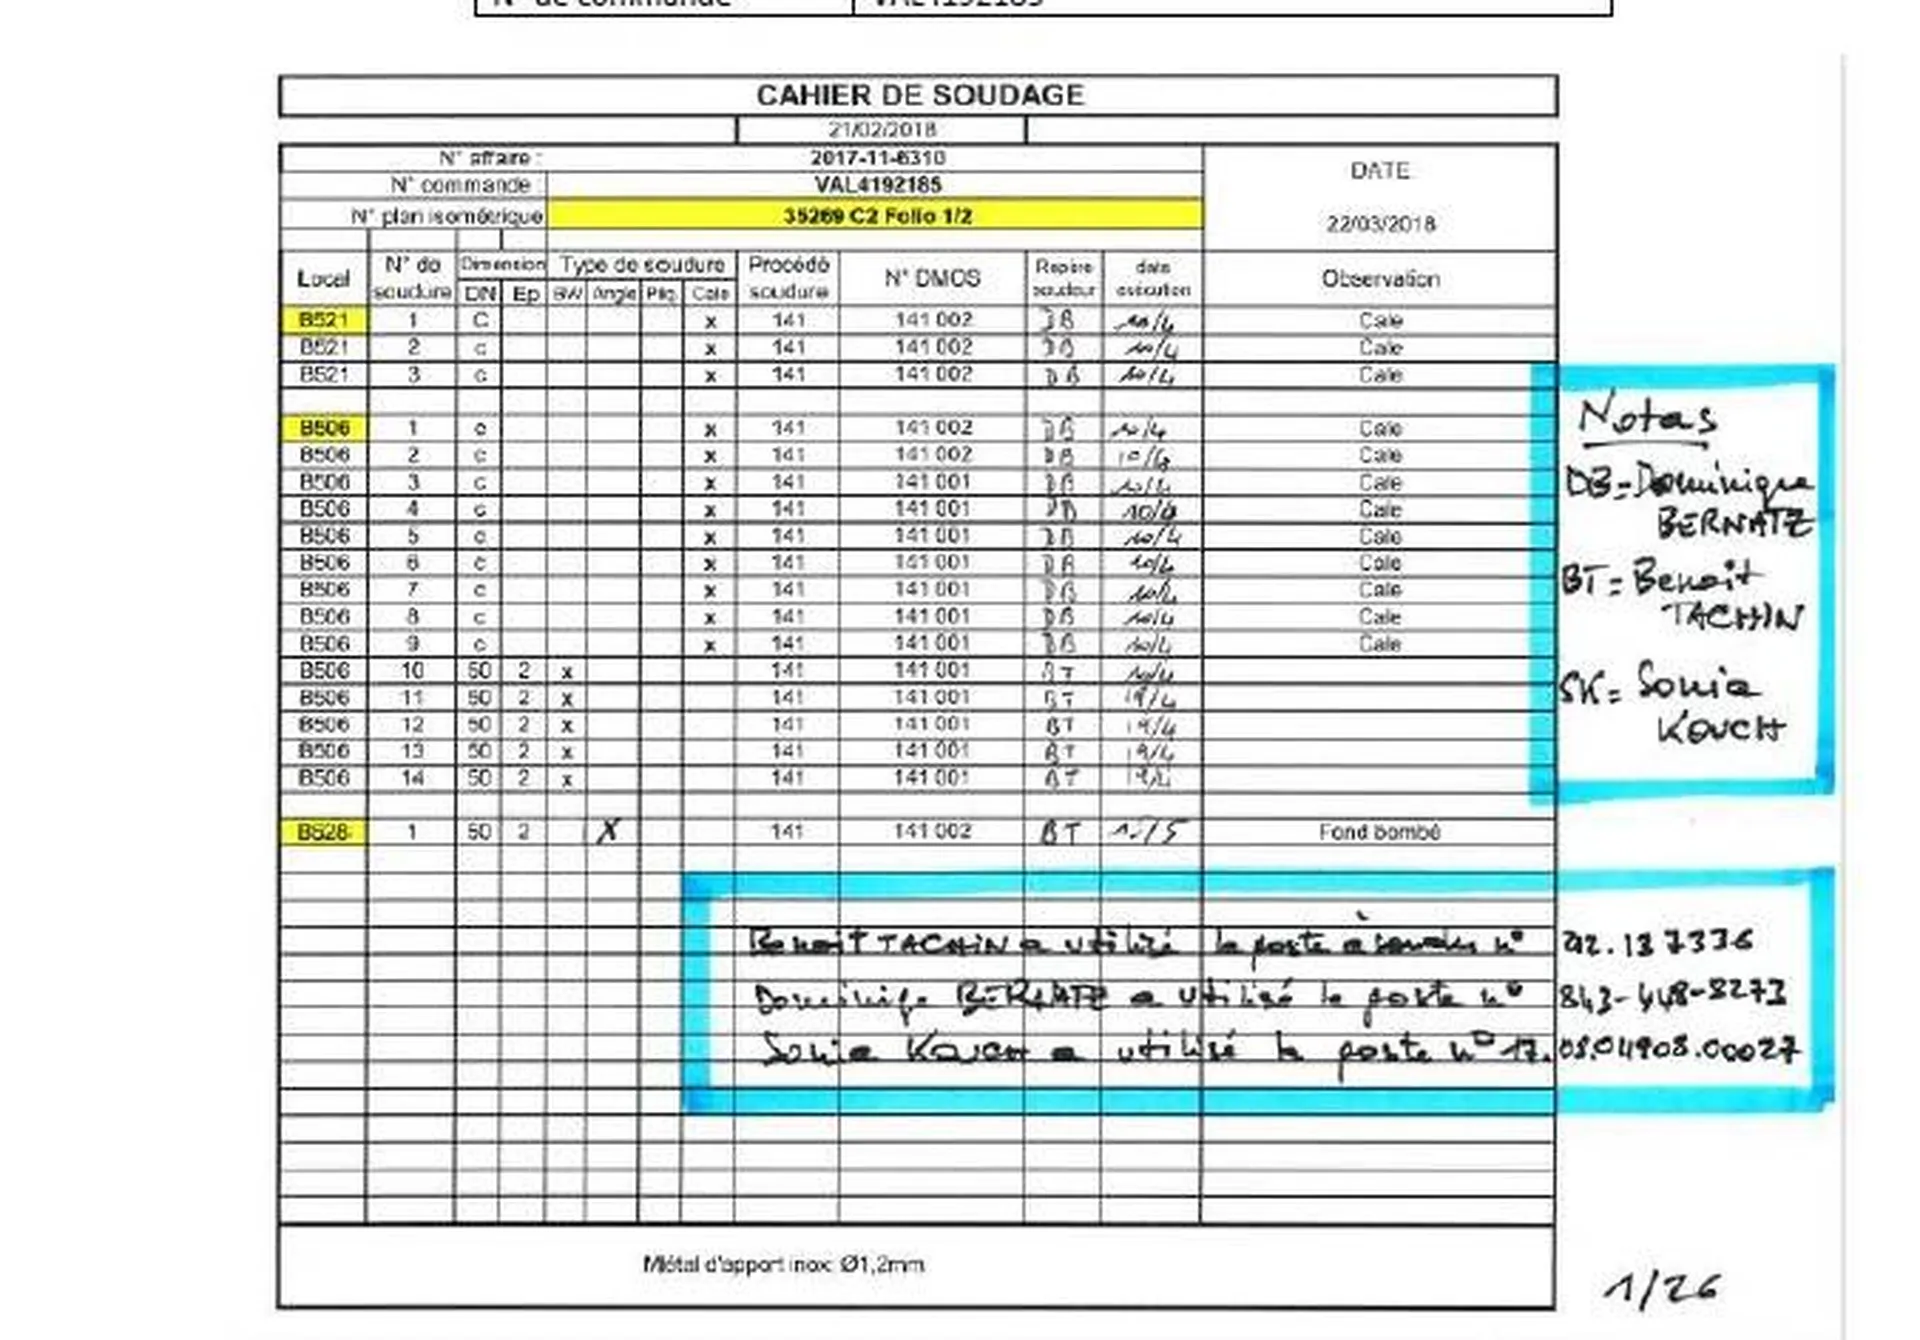 N° de commande VAL4192185
CAHIER DE SOUDAGE
21/02/2018
N° affaire : 2017-11-6310
DATE
N° commande : VAL4192185
N° plan isométrique 35269 C2 Folio 1/2
22/03/2018
Local N° de soudure Dimension DN Ep Type de soudure BW Angle Piq. Cale Procédé soudure N° DMOS Repère soudeur date exécution Observation
B521 1 C x 141 141 002 DB 10/4 Cale
B521 2 c x 141 141 002 DB 10/4 Cale
B521 3 c x 141 141 002 DB 10/4 Cale
B506 1 c x 141 141 002 DB 10/4 Cale
B506 2 c x 141 141 002 DB 10/4 Cale
B506 3 c x 141 141 001 DB 10/4 Cale
B506 4 c x 141 141 001 DB 10/4 Cale
B506 5 c x 141 141 001 DB 10/4 Cale
B506 6 c x 141 141 001 DB 10/4 Cale
B506 7 c x 141 141 001 DB 10/4 Cale
B506 8 c x 141 141 001 DB 10/4 Cale
B506 9 c x 141 141 001 DB 10/4 Cale
B506 10 50 2 x 141 141 001 BT
B506 11 50 2 x 141 141 001 BT 19/4
B506 12 50 2 x 141 141 001 BT 19/4
B506 13 50 2 x 141 141 001 BT 19/4
B506 14 50 2 x 141 141 001 BT 19/4
B528 1 50 2 X 141 141 002 BT Fond bombé
Notas
DB = Dominique
BERNATZ
BT = Benoit
TACHIN
SK = Sonia
KOUCH
Benoit TACHIN a utilisé le poste à souder n° 137336
Dominique BERNATZ a utilisé le poste n° 843-448-8273
Sonia KOUCH a utilisé le poste n° 17.08.04908.00027
Métal d'apport inox: Ø1,2mm
1/26